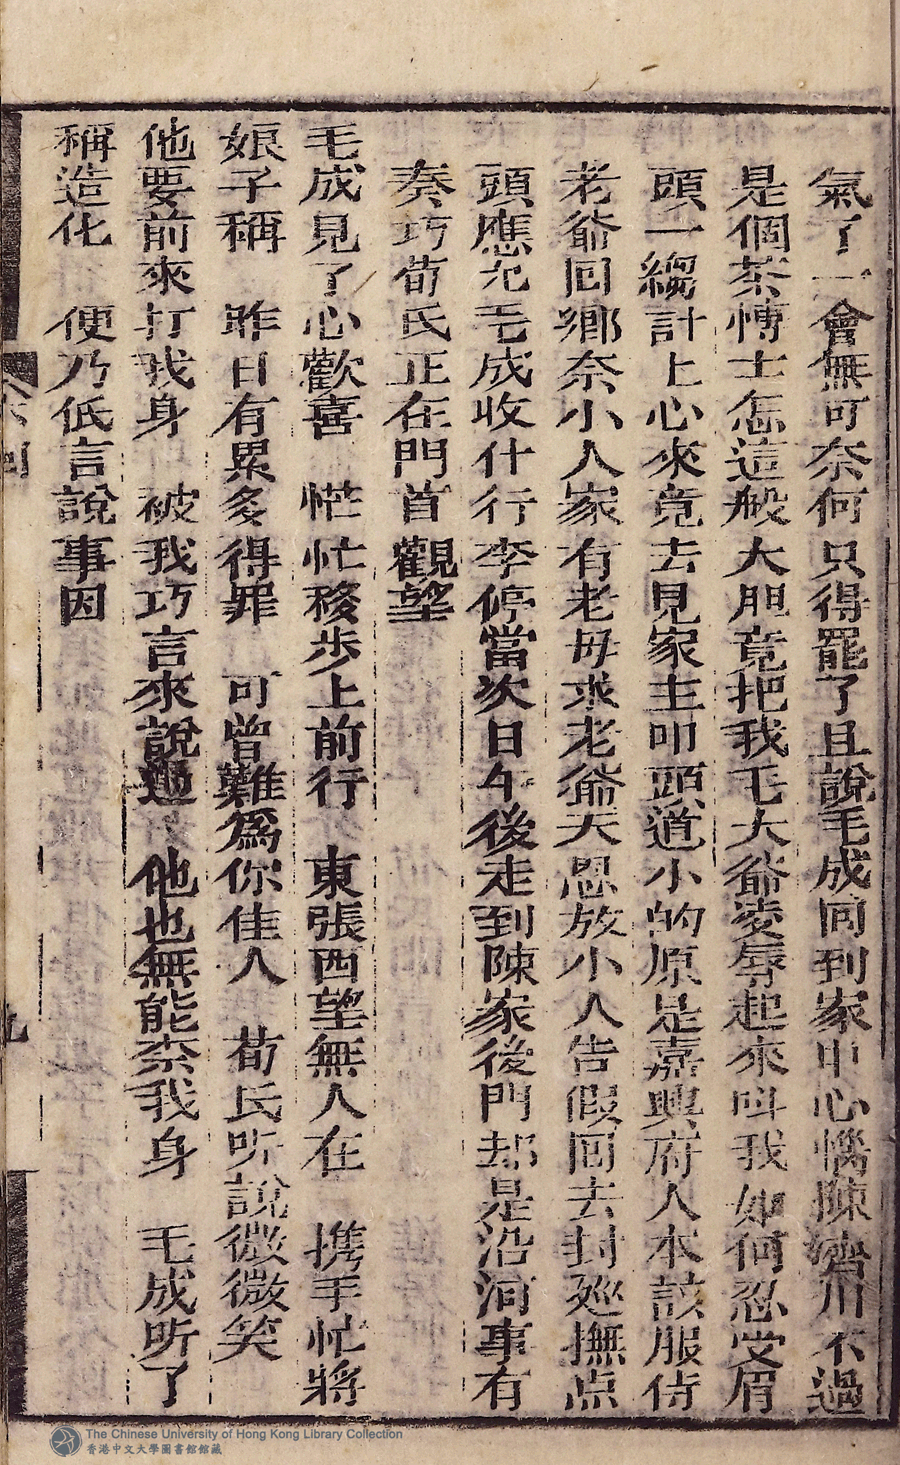 氣了一會無可奈何只得罷了且說毛成回到家中心惱陳濟川不過
是個茶愽士怎這般大胆竟把我毛大爺凌辱起來呌我如何忍受眉
頭一縐計上心來竟去見家主叩頭道小的原是嘉興府人本該服侍
老爺回鄉奈小人家有老毋求老爺天恩放小人告假回去封廵撫点
頭應允毛成收什行李停當次日午後走到陳家後門却是沿河事有
奏巧荀氏正在門首觀望
毛成見了心歡喜 忙忙移步上前行 東張西望無人在 携手忙將
娘子稱 昨日有累多得罪 可曾難爲你佳人 荀氏听說微微笑
他要前來打我身 被我巧言來說過 他也無能奈我身 毛成听了
稱造化 便乃低言說事因
九
The Chinese University of Hong Kong Library Collection
香港中文大學圖書館館藏